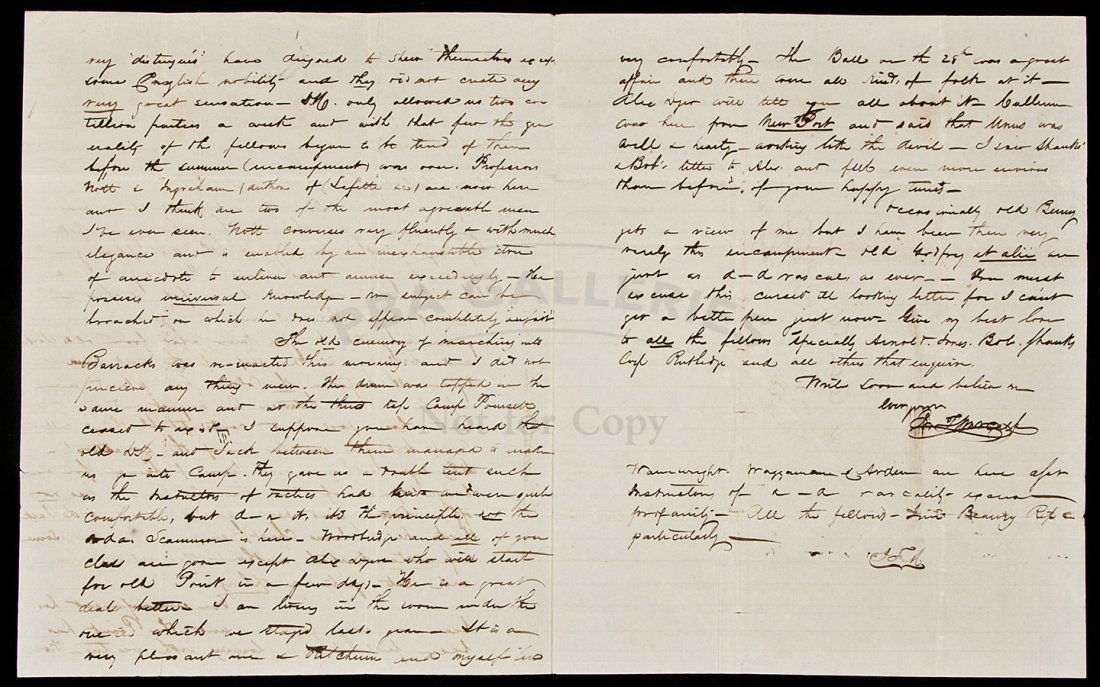 very "distingués" have deigned to shew themselves
some English nobility and they did not create any
very great sensation – only allowed us two co
tillion parties a week and with that few the gen
erality of the fellows began to be tired of them
before the summer (encampment) was over. Professors
Nott & Ingraham (author of (Lafitte &c) are now here
and I think are two of the most agreeable men
I've ever seen. Nott converses very fluently & with much
elegance and is enabled by an inexhaustible store
of anecdote to enliven and amuse exceedingly – He
possesses universal knowledge – no subject can be
broached, on which he does not appear completely
The old ceremony of marching into
Barracks was re-enacted this morning and I did not
perceive any thing new. The drum was tapped in the
same manner and at the third tap Camp
ceased to exist. I suppose you have heard that
old and Jack between them managed to make
us go into Camp. They gave us a double tent such
as the Instructors of tactics had and were quite
comfortable, but d–n it, it's the principle, not the
Scammon is here – Woodbridge and all of your
class are gone except who will start
for old Point in a few days – He is a great
deal better – I am living in the room under the
one in which we stayed last year – It is a
very pleasant one & Ketchum and myself live
very comfortably – The Ball on the 28th was a great
affair and there were all kinds of folk at it –
will tell you all about it – Cullum
was here from New Port and said that was
well & hearty – working like the devil – I saw Shanks'
& Bob's letter to and felt even more envious
than before, of your happy times –
Occasionally old Benny
gets a view of me but I have been there very
rarely this encampment – old Godfrey et alii are
just as d–d rascals as ever – You must
excuse this cursed ill looking letter for I can't
get a better pen just now – Give my best love
to all the fellows Specially Arnold, Jones, Bob, Shanks
Rutledge and all others that enquire.
Write soon and believe me
Ever yours
Wainwright, Waggaman & Arden are here
Instructors of d–d rascality
profanity – All the fellows
particularly –
PBA GALLERIES
Not For Copy